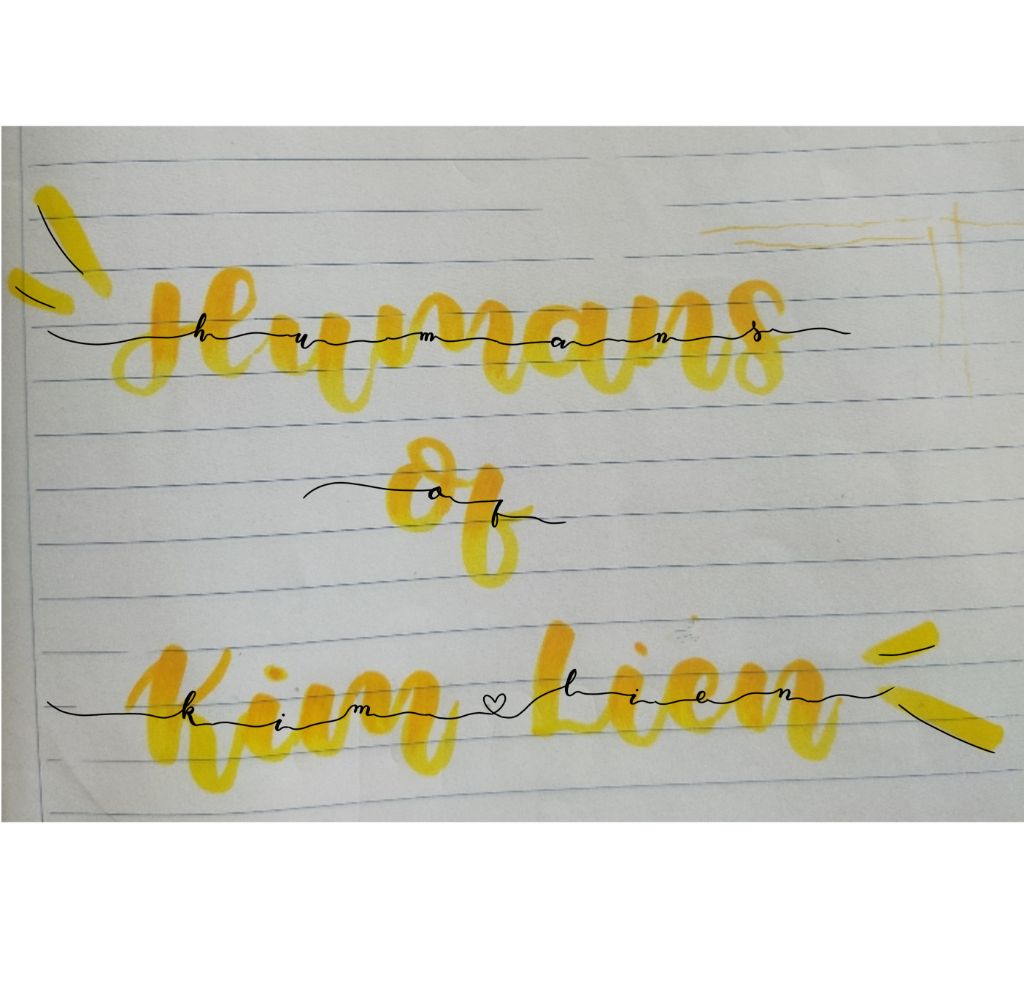 Humans
humans
Of
of
Kim Lien
kim lien